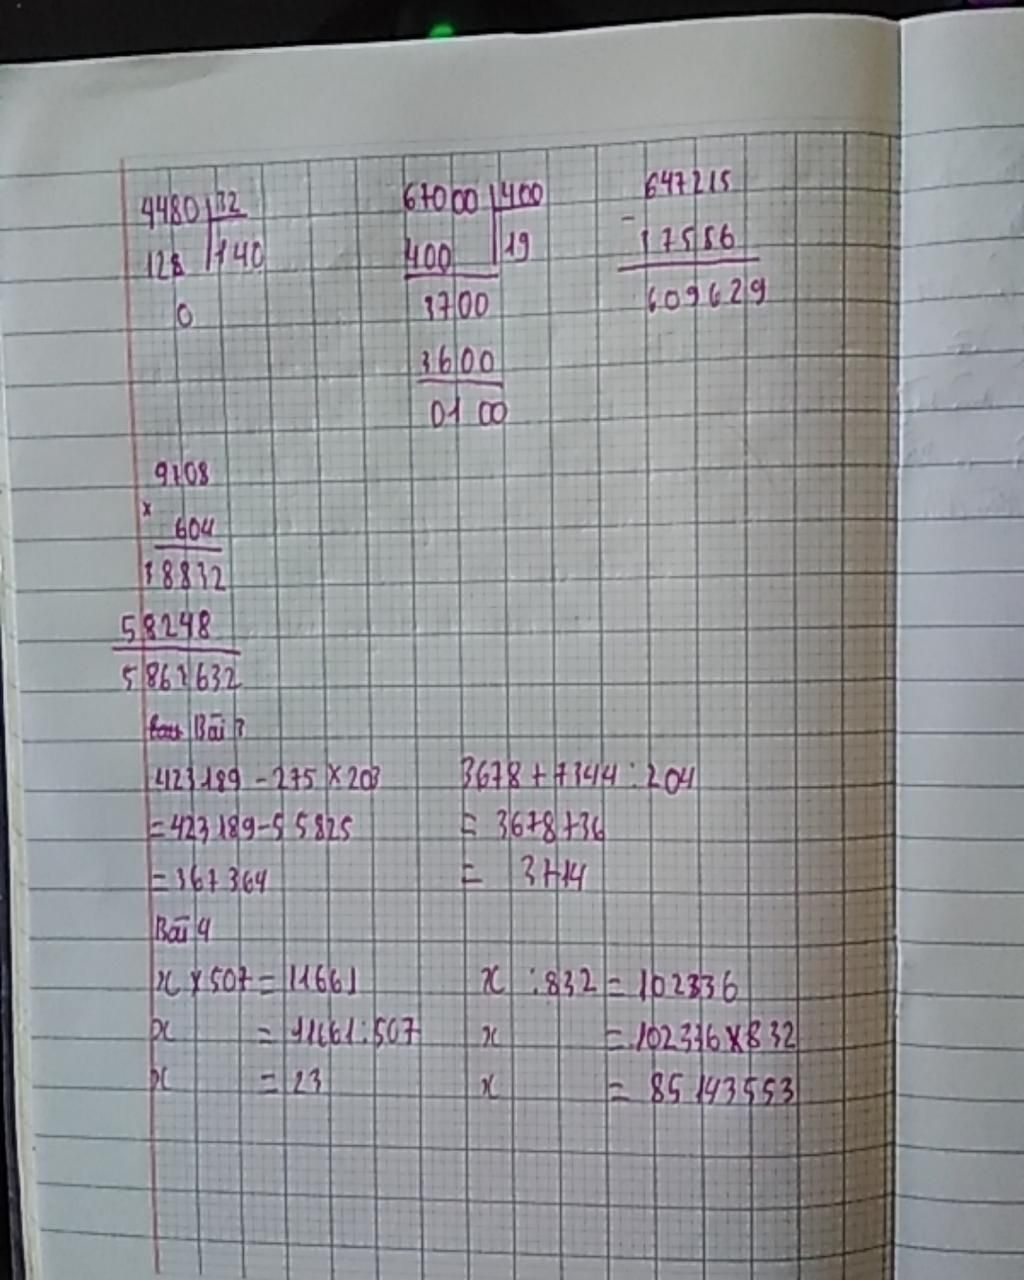 4480 32
128 140
0
67000 400
400 19
3700
3600
0100
647215
-
17586
609629
9708
x
604
38832
58248
5863632
Bài 3
423189 - 275 x 203
= 423189 - 55825
= 367364
3678 + 7344 : 204
= 3678 + 36
= 3714
Bài 4
x x 507 = 11661
x = 11661 : 507
x = 23
x : 832 = 102336
x = 102336 x 832
x = 85143553